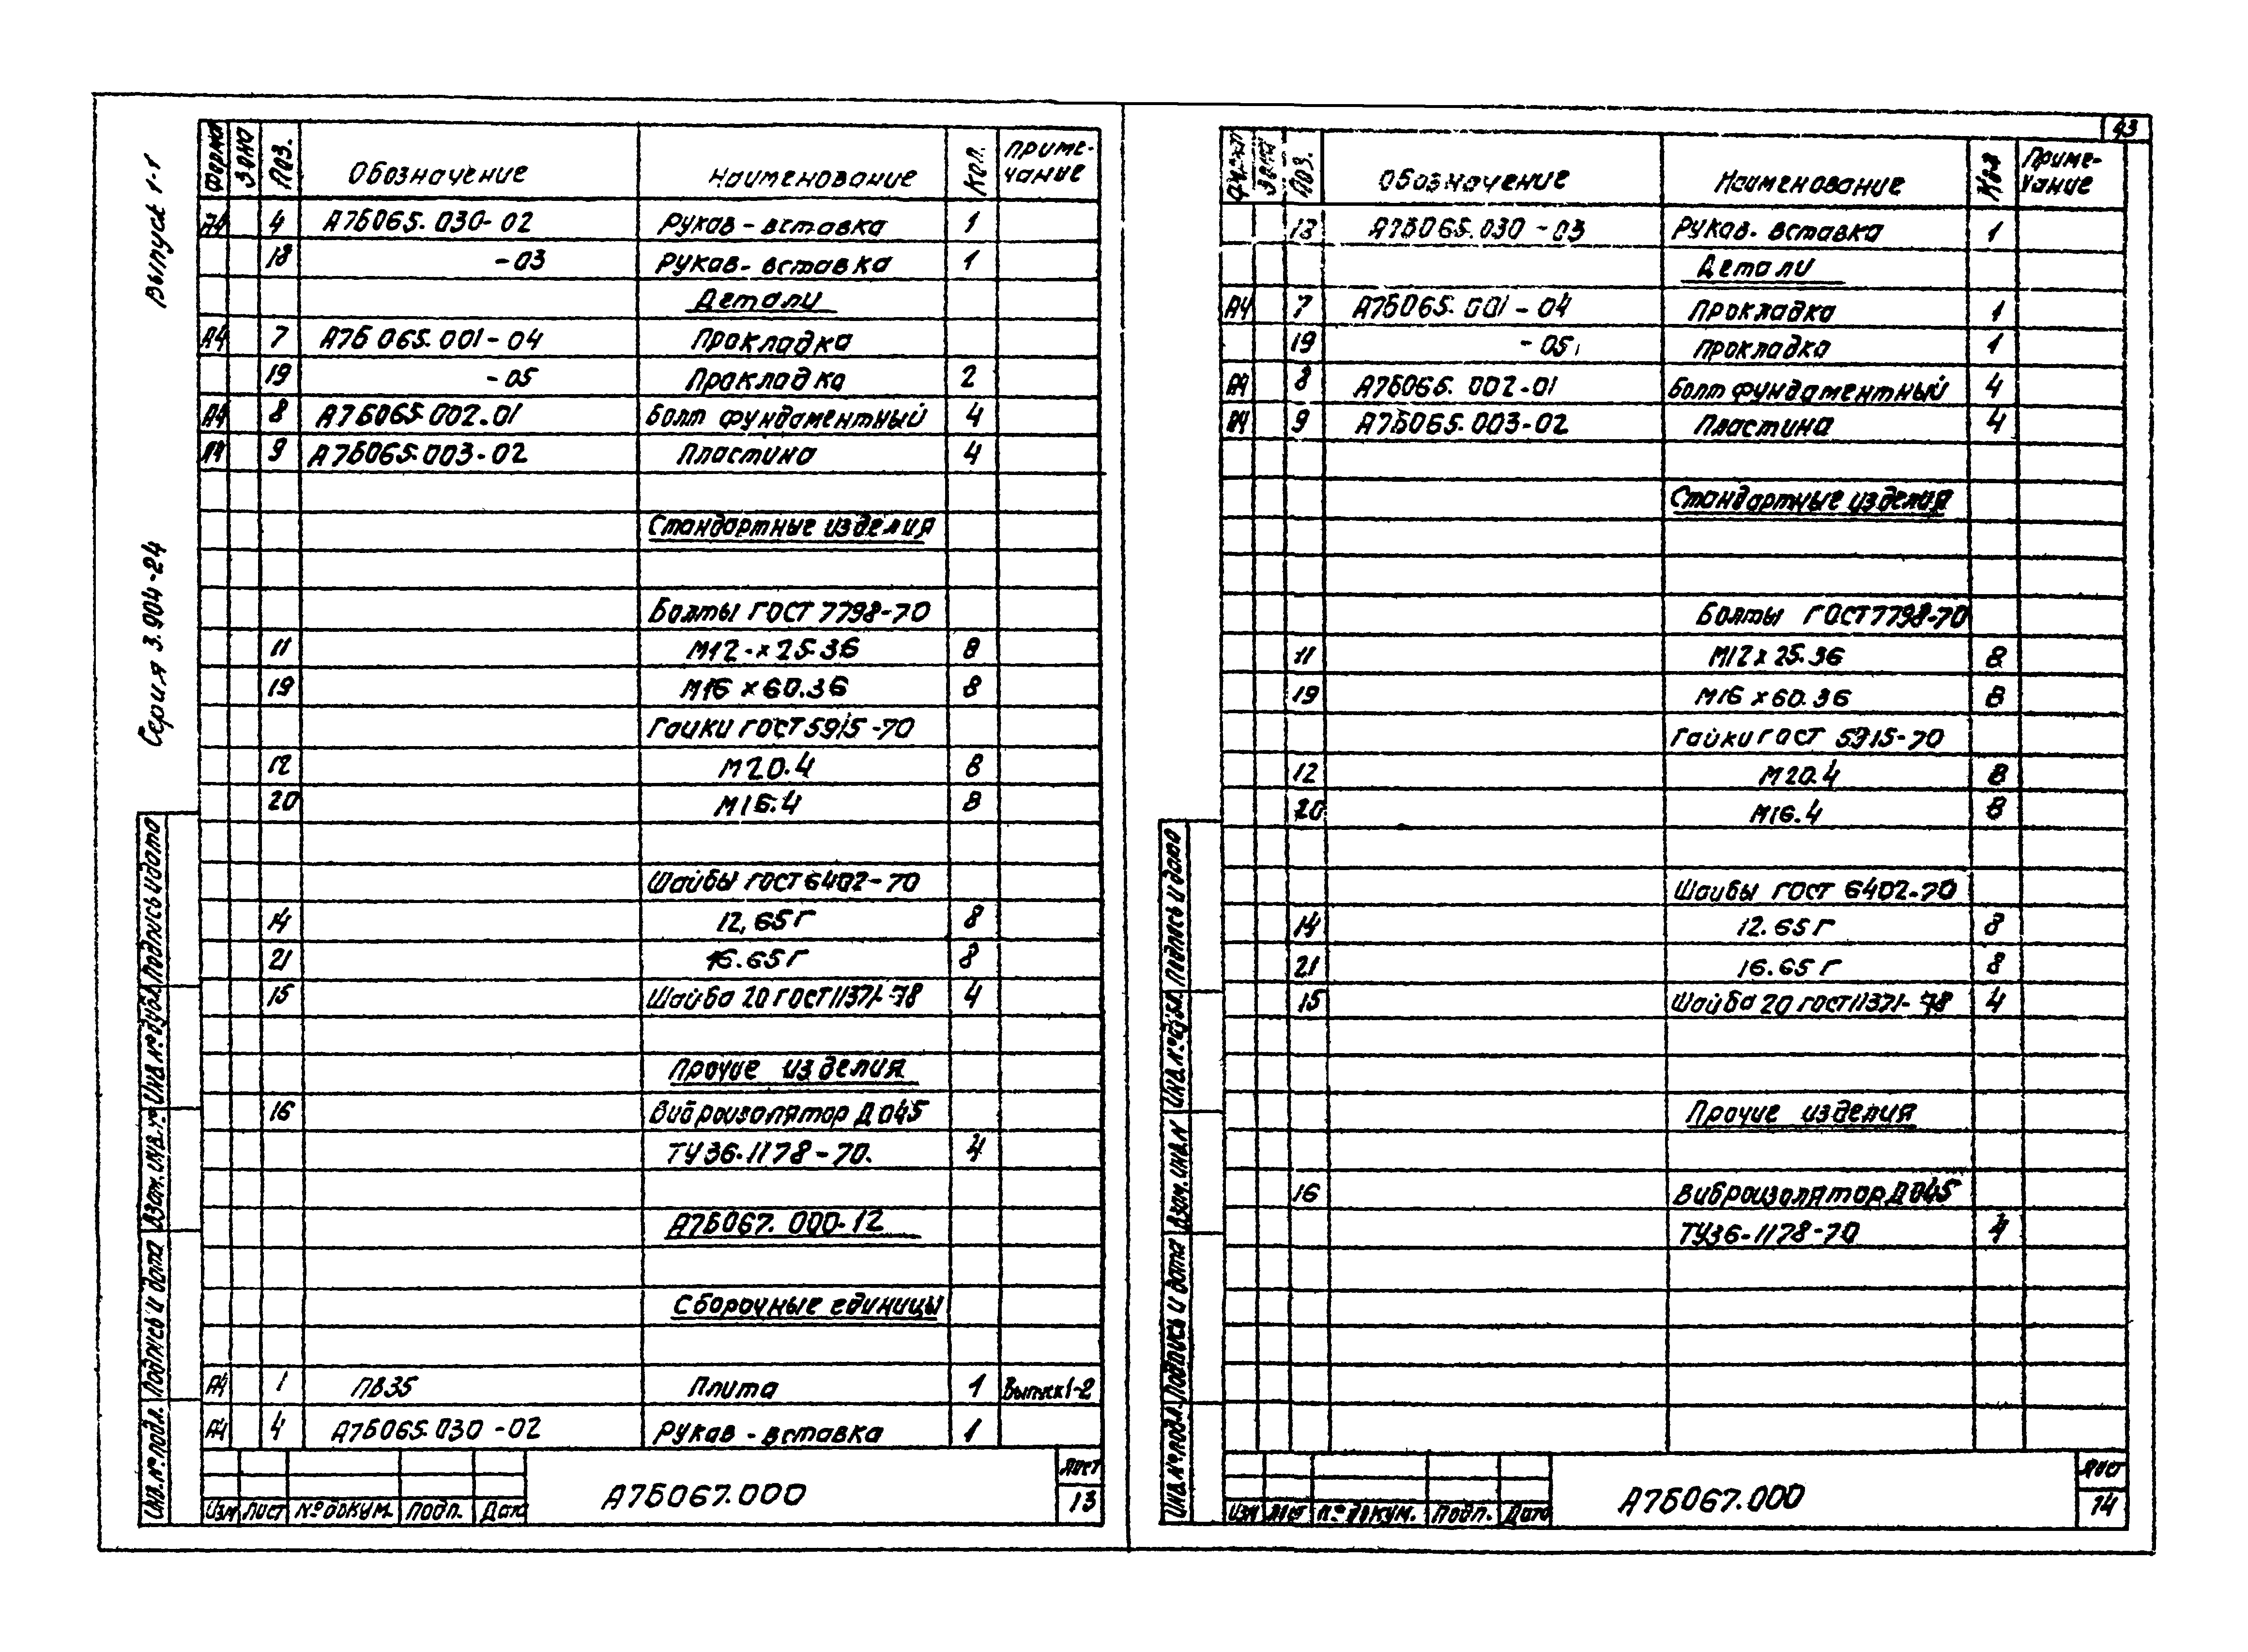 43
Выпуск 1-1
Серия 3.904-24
Форма Зона Поз. Обозначение Наименование Кол. Приме-
чание
А4 4 А7Б065.030-02 Рукав-вставка 1
18 -03 Рукав-вставка 1
Детали
А4 7 А7Б065.001-04 Прокладка
19 -05 Прокладка 2
А4 8 А7Б065.002.01 Болт фундаментный 4
А4 9 А7Б065.003-02 Пластина 4
Стандартные изделия
Болты ГОСТ 7798-70
11 М12-х25.36 8
19 М16х60.36 8
Гайки ГОСТ 5915-70
12 М20.4 8
20 М16.4 8
Шайбы ГОСТ 6402-70
14 12,65Г 8
21 16.65Г 8
15 Шайба 20 ГОСТ 11371-78 4
Прочие изделия
16 Виброизолятор ДО45
ТУ36-1178-70. 4
А7Б067.000-12
Сборочные единицы
А4 1 ПВ35 Плита 1 Выпуск 1-2
А4 4 А7Б065.030-02 Рукав-вставка 1
Инв.№ подл. Подпись и дата Взам.инв.№ Инв.№ дубл. Подпись и дата
Изм Лист № докум. Подп. Дата
А7Б067.000
Лист
13
Зона Поз. Обозначение Наименование Кол Приме-
чание
13 А7Б065.030-03 Рукав-вставка 1
Детали
А4 7 А7Б065.001-04 Прокладка 1
19 -05 Прокладка 1
А4 8 А7Б065.002-01 Болт фундаментный 4
А4 9 А7Б065.003-02 Пластина 4
Стандартные изделия
Болты ГОСТ 7798-70
11 М12х25.36 8
19 М16х60.36 8
Гайки ГОСТ 5915-70
12 М20.4 8
20 М16.4 8
Шайбы ГОСТ 6402-70
14 12.65Г 8
21 16.65Г 8
15 Шайба 20 ГОСТ 11371-78 4
Прочие изделия
16 Виброизолятор ДО45
ТУ36-1178-70 4
Инв.№ подл. Подпись и дата Взам.инв.№ Инв.№ дубл. Подпись и дата
Изм Лист № докум. Подп. Дата
А7Б067.000
Лист
14